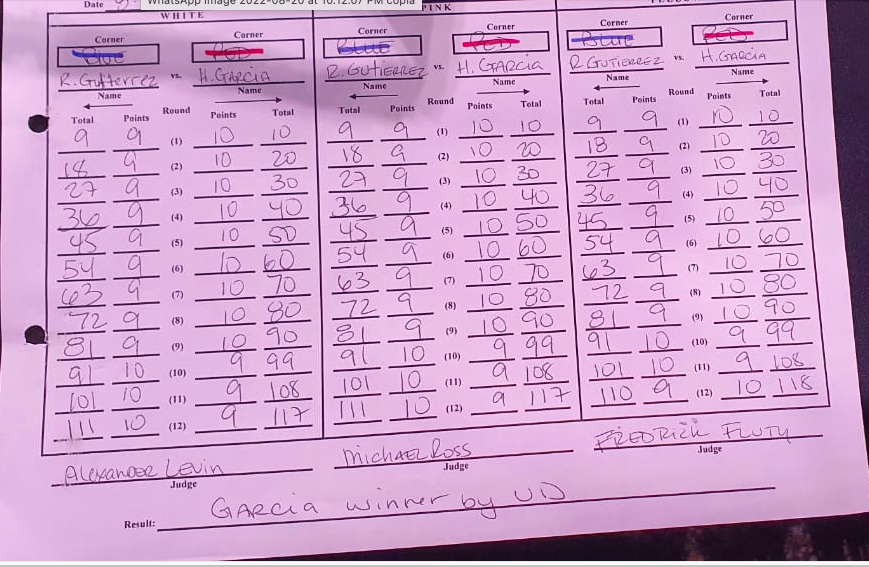 Date
WhatsApp Image 2022-08-20 at 10.12.07 PM copia
WHITE PINK
Corner Corner Corner Corner Corner Corner
Blue RED Blue RED Blue RED
R. Gutierrez vs. H. GARCIA R. GUTIERREZ vs. H. GARCIA R. GUTIERREZ vs. H. GARCIA
Name Name Name Name Name Name
Total Points Round Points Total Total Points Round Points Total Total Points Round Points Total
9 9 (1) 10 10 9 9 (1) 10 10 9 9 (1) 10 10
18 9 (2) 10 20 18 9 (2) 10 20 18 9 (2) 10 20
27 9 (3) 10 30 27 9 (3) 10 30 27 9 (3) 10 30
36 9 (4) 10 40 36 9 (4) 10 40 36 9 (4) 10 40
45 9 (5) 10 50 45 9 (5) 10 50 45 9 (5) 10 50
54 9 (6) 10 60 54 9 (6) 10 60 54 9 (6) 10 60
63 9 (7) 10 70 63 9 (7) 10 70 63 9 (7) 10 70
72 9 (8) 10 80 72 9 (8) 10 80 72 9 (8) 10 80
81 9 (9) 10 90 81 9 (9) 10 90 81 9 (9) 10 90
91 10 (10) 9 99 91 10 (10) 9 99 91 10 (10) 9 99
101 10 (11) 9 108 101 10 (11) 9 108 101 10 (11) 9 108
111 10 (12) 9 117 111 10 (12) 9 117 110 9 (12) 10 118
Alexander Levin Michael Ross FREDRICK FLUTY
Judge Judge Judge
Result: GARCIA winner by UD